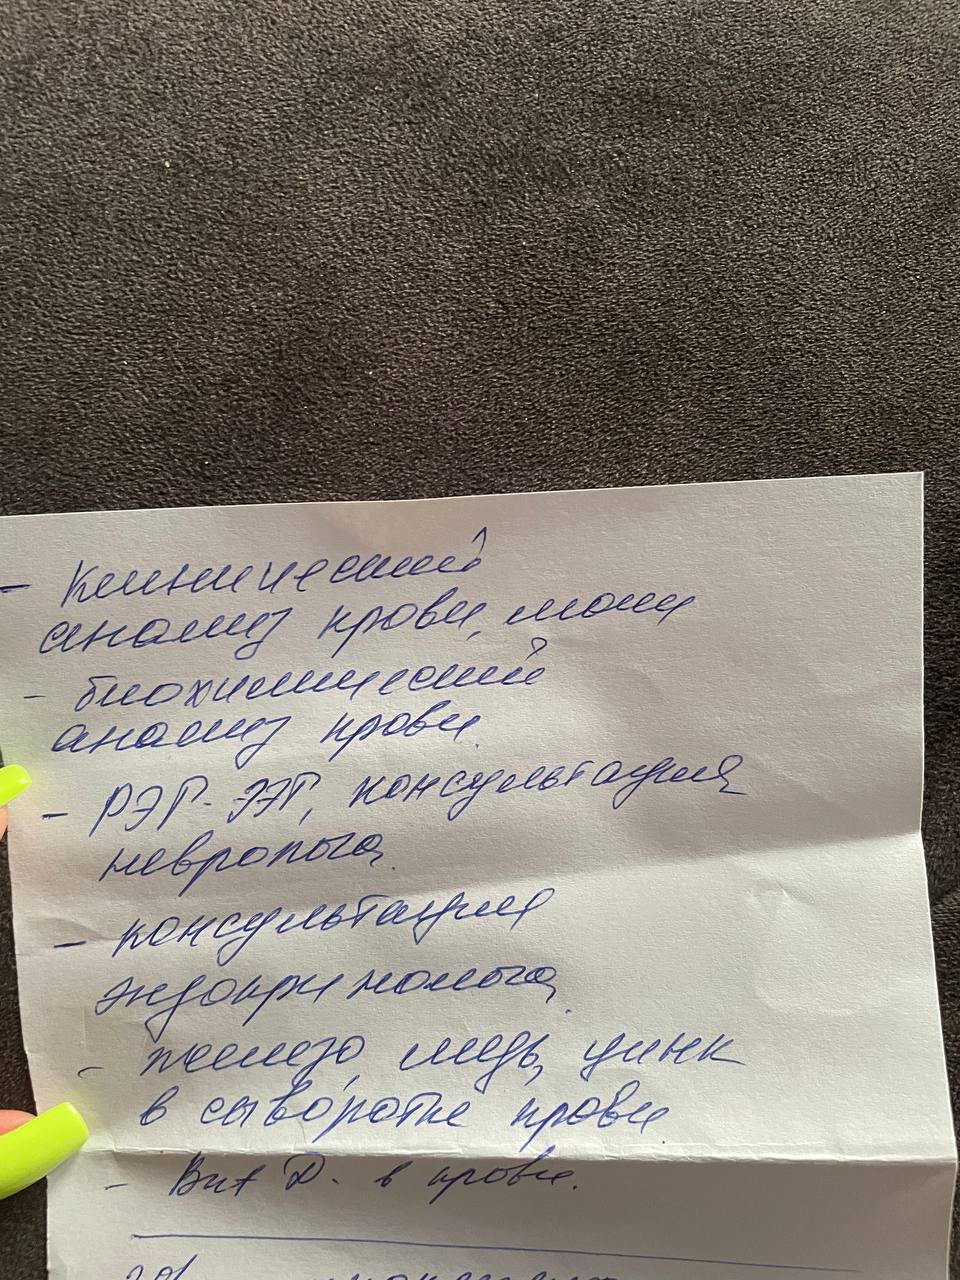 - Клинический
анализ крови, мочи
- биохимический
анализ крови.
- РЭГ-ЭЭГ, консультация
невролога.
- консультация
эндокринолога.
- железо, медь, цинк
в сыворотке крови
- Вит Д. в крови.